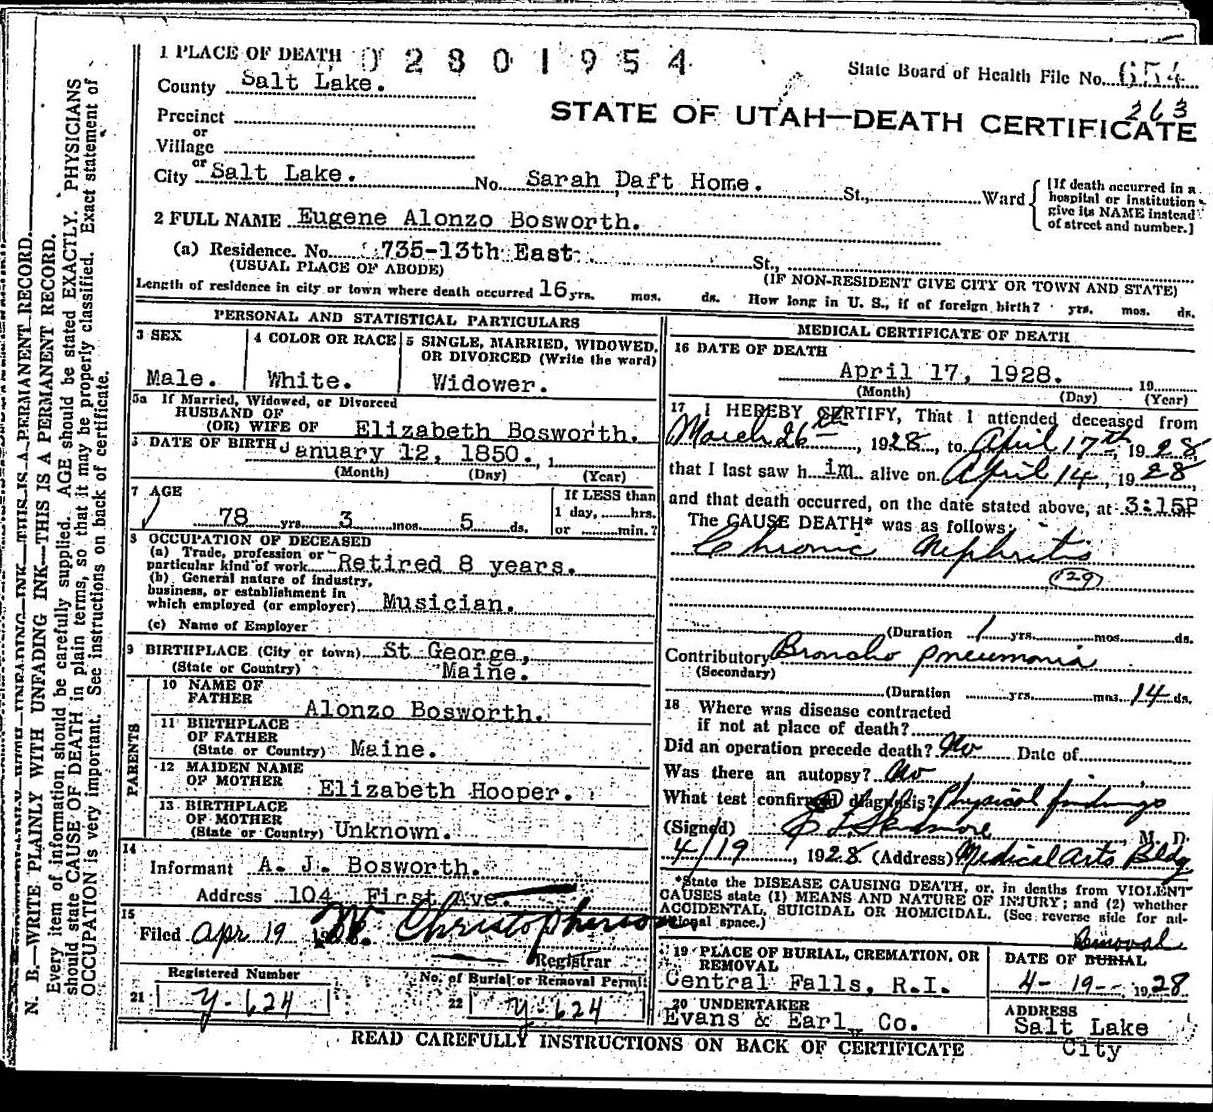 1 PLACE OF DEATH 02801954
State Board of Health File No. 654
263
County Salt Lake.
STATE OF UTAH—DEATH CERTIFICATE
Precinct
or
Village
or
City Salt Lake. No. Sarah Daft Home. St., Ward
[If death occurred in a
hospital or institution
give its NAME instead
of street and number.]
2 FULL NAME Eugene Alonzo Bosworth.
(a) Residence. No. 735-13th East. St.,
(USUAL PLACE OF ABODE) (IF NON-RESIDENT GIVE CITY OR TOWN AND STATE)
Length of residence in city or town where death occurred 16 yrs. mos. ds. How long in U. S., if of foreign birth? yrs. mos. ds.
PERSONAL AND STATISTICAL PARTICULARS
3 SEX
Male.
4 COLOR OR RACE
White.
5 SINGLE, MARRIED, WIDOWED,
OR DIVORCED (Write the word)
Widower.
5a If Married, Widowed, or Divorced
HUSBAND OF
(OR) WIFE OF Elizabeth Bosworth.
DATE OF BIRTH January 12, 1850. , 1
(Month) (Day) (Year)
7 AGE
78 yrs. 3 mos. 5 ds.
If LESS than
1 day, hrs.
or min.?
8 OCCUPATION OF DECEASED
(a) Trade, profession or
particular kind of work Retired 8 years.
(b) General nature of industry,
business, or establishment in
which employed (or employer) Musician.
(c) Name of Employer
9 BIRTHPLACE (City or town) St George,
(State or Country) Maine.
PARENTS
10 NAME OF
FATHER
Alonzo Bosworth.
11 BIRTHPLACE
OF FATHER
(State or Country) Maine.
12 MAIDEN NAME
OF MOTHER Elizabeth Hooper.
13 BIRTHPLACE
OF MOTHER
(State or Country) Unknown.
14
Informant A. J. Bosworth.
Address 104 First Ave.
15
Filed Apr 19 192
Registrar
Registered Number
21 Y-624
No. of Burial or Removal Permit
22 Y-624
MEDICAL CERTIFICATE OF DEATH
16 DATE OF DEATH
April 17, 1928. 19
(Month) (Day) (Year)
17 I HEREBY CERTIFY, That I attended deceased from
March 26th, 1928, to April 17th, 1928
that I last saw him alive on April 14, 1928,
and that death occurred, on the date stated above, at 3:15P
The CAUSE DEATH* was as follows:
Chronic Nephritis
129
(Duration 1 yrs. mos. ds.
Contributory Broncho pneumonia
(Secondary)
(Duration yrs. mos. 14 ds.
18 Where was disease contracted
if not at place of death?
Did an operation precede death? No Date of
Was there an autopsy? No
What test confirmed diagnosis? Physical findings
(Signed) M. D.
4/19, 1928. (Address) Medical Arts Bldg
*State the DISEASE CAUSING DEATH, or, in deaths from VIOLENT
CAUSES state (1) MEANS AND NATURE OF INJURY; and (2) whether
ACCIDENTAL, SUICIDAL OR HOMICIDAL. (See reverse side for additional space.)
19 PLACE OF BURIAL, CREMATION, OR
REMOVAL
Central Falls, R.I.
Removal
DATE OF BURIAL
4-19-, 1928
20 UNDERTAKER
Evans & Early Co.
ADDRESS
Salt Lake
City
READ CAREFULLY INSTRUCTIONS ON BACK OF CERTIFICATE
N. B.—WRITE PLAINLY WITH UNFADING INK—THIS IS A PERMANENT RECORD.
Every item of information should be carefully supplied. AGE should be stated EXACTLY. PHYSICIANS
should state CAUSE OF DEATH in plain terms, so that it may be properly classified. Exact statement of
OCCUPATION is very important. See instructions on back of certificate.